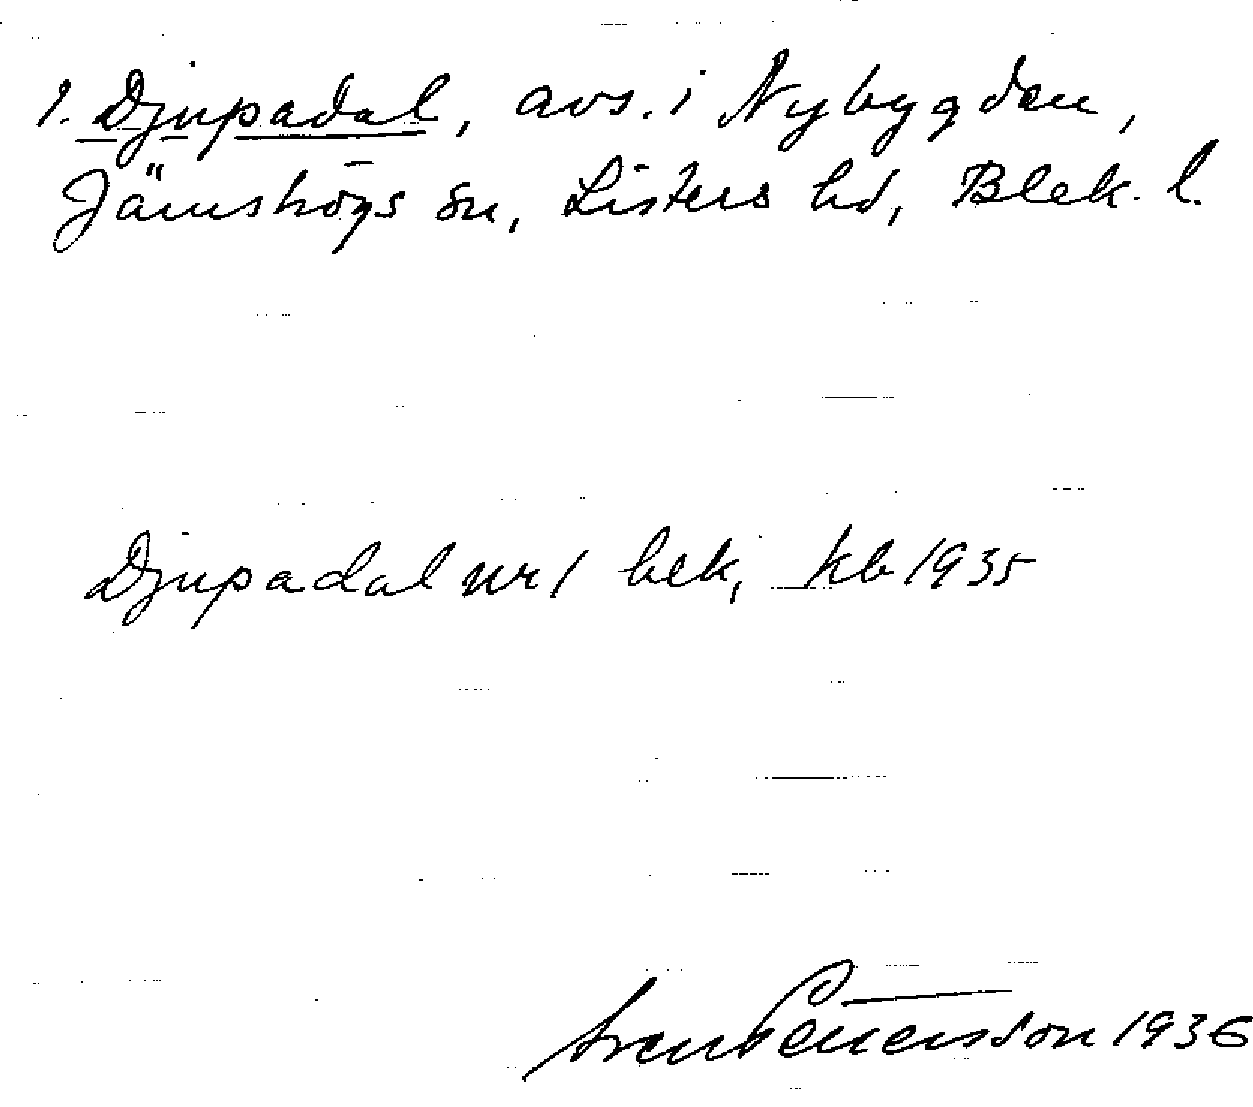 1. Djupadal, avs. i Nybygden,
Jämshögs sn, Listers hd, Blek. l.
Djupadal nr 1 bek, kb 1935
Sven Petersson 1936